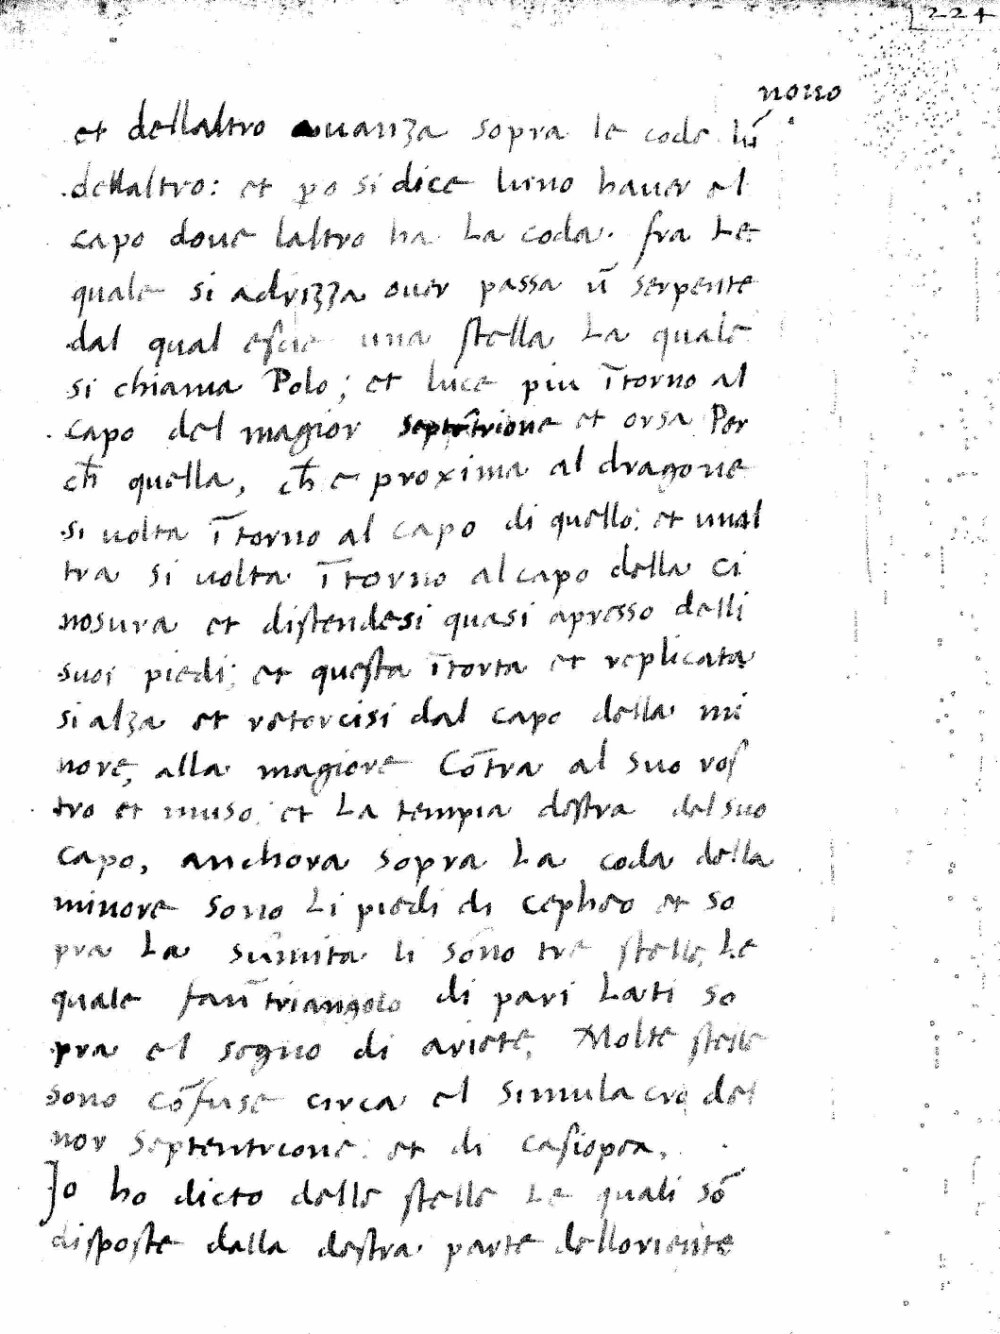 224
nono
et dellaltro auanza sopra le code lū
dellaltro: et p̱o si dice luno hauer el
capo doue laltro ha La coda. fra Le
quale si adrizza ouer passa ū serpente
dal qual escie una stella La quale
si chiama Polo; et luce piu ītorno al
capo del magior septētrione et orsa Per
ch̄ quella, ch̄ e proxima al dragone
si uolta ītorno al capo di quello: et unal
tra si uolta ītorno al capo della ci
nosura et distendesi quasi apresso delli
suoi piedi; et questa ītorta et replicata
si alza et retorcisi dal capo della mi
nore, alla magiore Cōtra al suo ros
tro et muso: et La tempia destra del suo
capo, anchora sopra La coda della
minore sono Li piedi di cepheo et so
pra La sūmita li sono tre stelle, Le
quale fan triangolo di pari Lati so
pra el segno di ariete, Molte stelle
sono cōfuse circa el simulacro del
nor Septentrione et di casiopea.
Io ho dicto delle stelle Le quali sō
disposte dalla destra parte delloriente